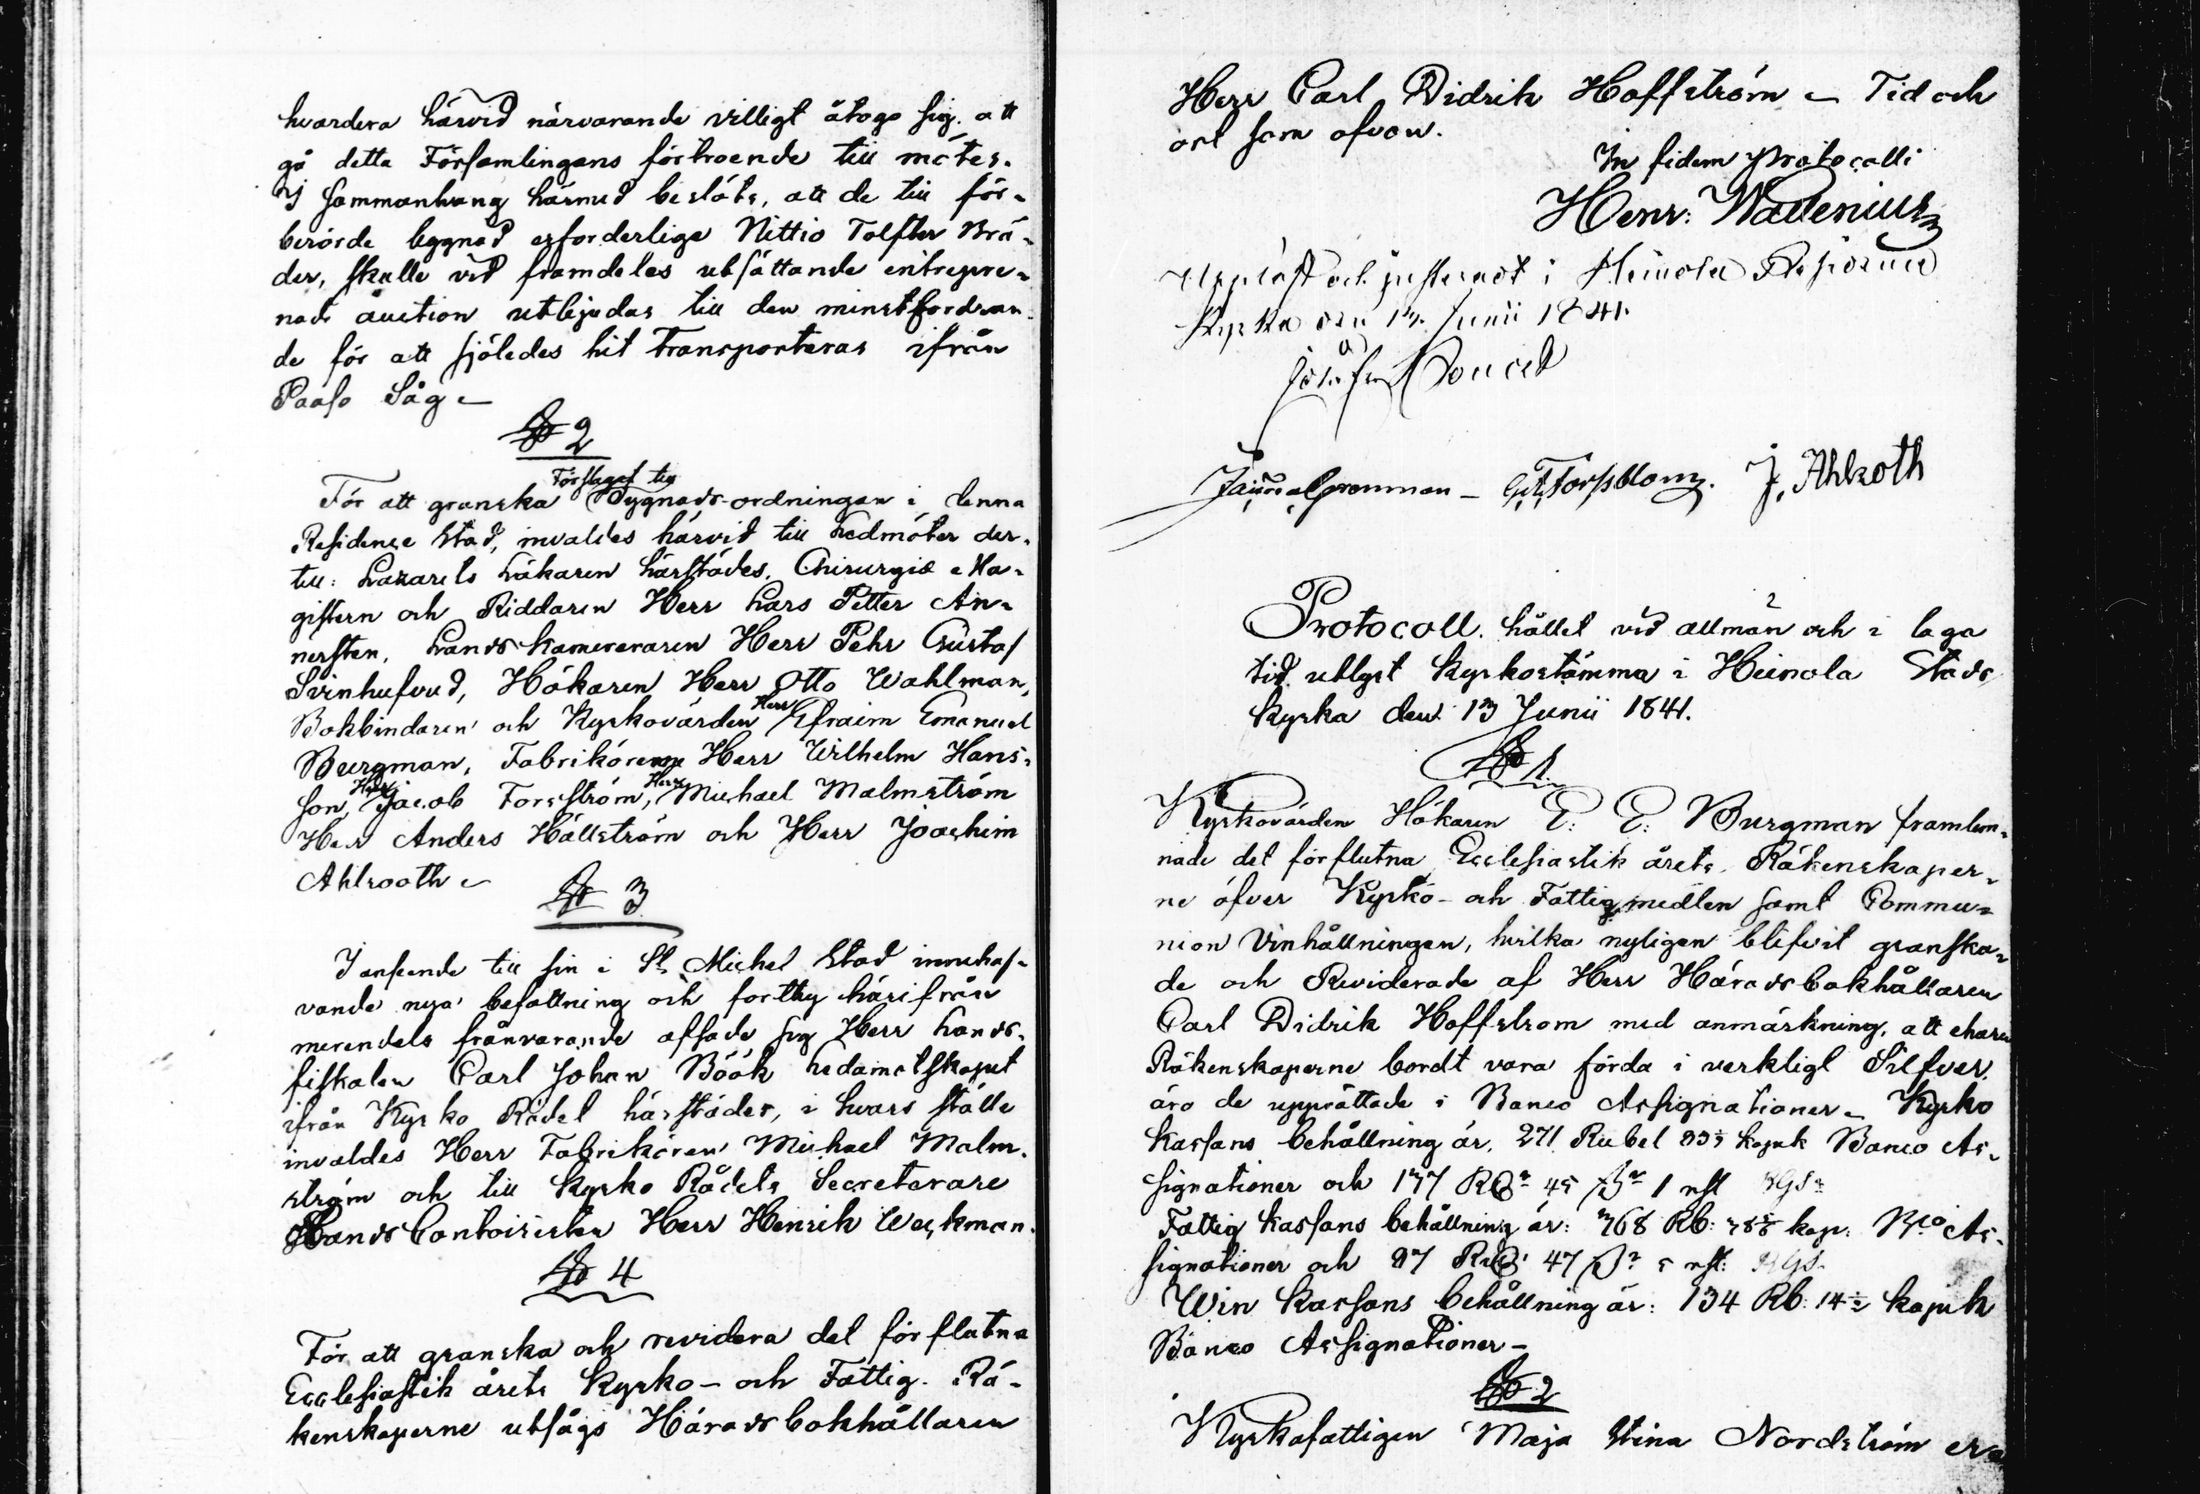 hvardera härvid närvarande villigt åtogo sig. att
gå detta Församlingens förtroende till mötes.
I sammanhang härmed beslöts, att de till för-
berörde byggnad erforderlige Nittio Tolfter Brä-
der, skulle vid framdeles utsättande entrepre-
nade auction utbjudas till den minstfordran-
de för att sjöledes hit transporteras ifrån
Paaso Såg
§ 2
Förslaget till
För att granska Bygnads-ordningen i denna
Residence Stad, invaldes härvid till Ledmöter der-
till: Lazarets Läkaren härstädes, Chirurgiæ Ma-
gistern och Riddaren Herr Lars Petter An-
nersten, Lands Kamereraren Herr Pehr Gustaf
Svinhufvud, Hökaren Herr Otto Wahlman,
Bokbindaren och Kyrkovärden Herr Efraim Emanuel
Burgman, Fabrikörerne Herr Wilhelm Hans-
son, Herr Jacob Forsström, Herr Michael Malmström
Herr Anders Hällström och Herr Joachim
Ahlrooth
§ 3
I anseende till sin i St Michel Stad innehaf-
vande nya befattning och forthy härifrån
merendels frånvarande afsade sig Herr Lands-
fiskalen Carl Johan Böök Ledamotskapet
ifrån Kyrko Rådet härstädes, i hvars ställe
invaldes Herr Fabrikören Michael Malm-
ström och till Kyrko Rådets Secreterare
Lands Contoiristen Herr Henrik Weckman.
§ 4
För att granska och revidera det förflutna
Ecclesiastik årets Kyrko- och Fattig- Rä-
kenskaperne utsågs Härads bokhållaren
Herr Carl Didrik Hoffström Tid och
ort som ofvan.
In fidem Protocolli
Henr: Wadenius
Uppläst och justeradt i Heinola Residence
Kyrka den 13 Junii 1841.
Josef Poucet
J. Ahlroth
Protocoll. hållet vid allmän och i laga
tid utlyst kyrkostämma i Heinola Stads
kyrka den 13 Junii 1841.
§ 1.
Kyrkovärden Hökaren E: E: Burgman framlem-
nade det förflutna Ecclesiastik årets Räkenskaper-
ne öfver Kyrko- och Fattigmedlen samt Commu-
nion Vinhållningen, hvilka nyligen blifvit granska-
de och Reviderade af Herr Häradsbokhållaren
Carl Didrik Hoffström med anmärkning, att ehuru
Räkenskaperne bordt vara förda i verkligt Silfver,
äro de upprättade i Banco Assignationer. Kyrko
kassans behållning är, 271 Rubel kopek Banco As-
signationer och 177 45 1 rst RGS
Fattig kassans behållning är: 768 Rb: kop: Bco As-
signationer och 97 47 5 rst: RGS
Win kassans behållning är: 134 Rb: 14 1/2 kopek
Banco Assignationer
§ 2
Kyrkofattigen Maja Stina Nordström er